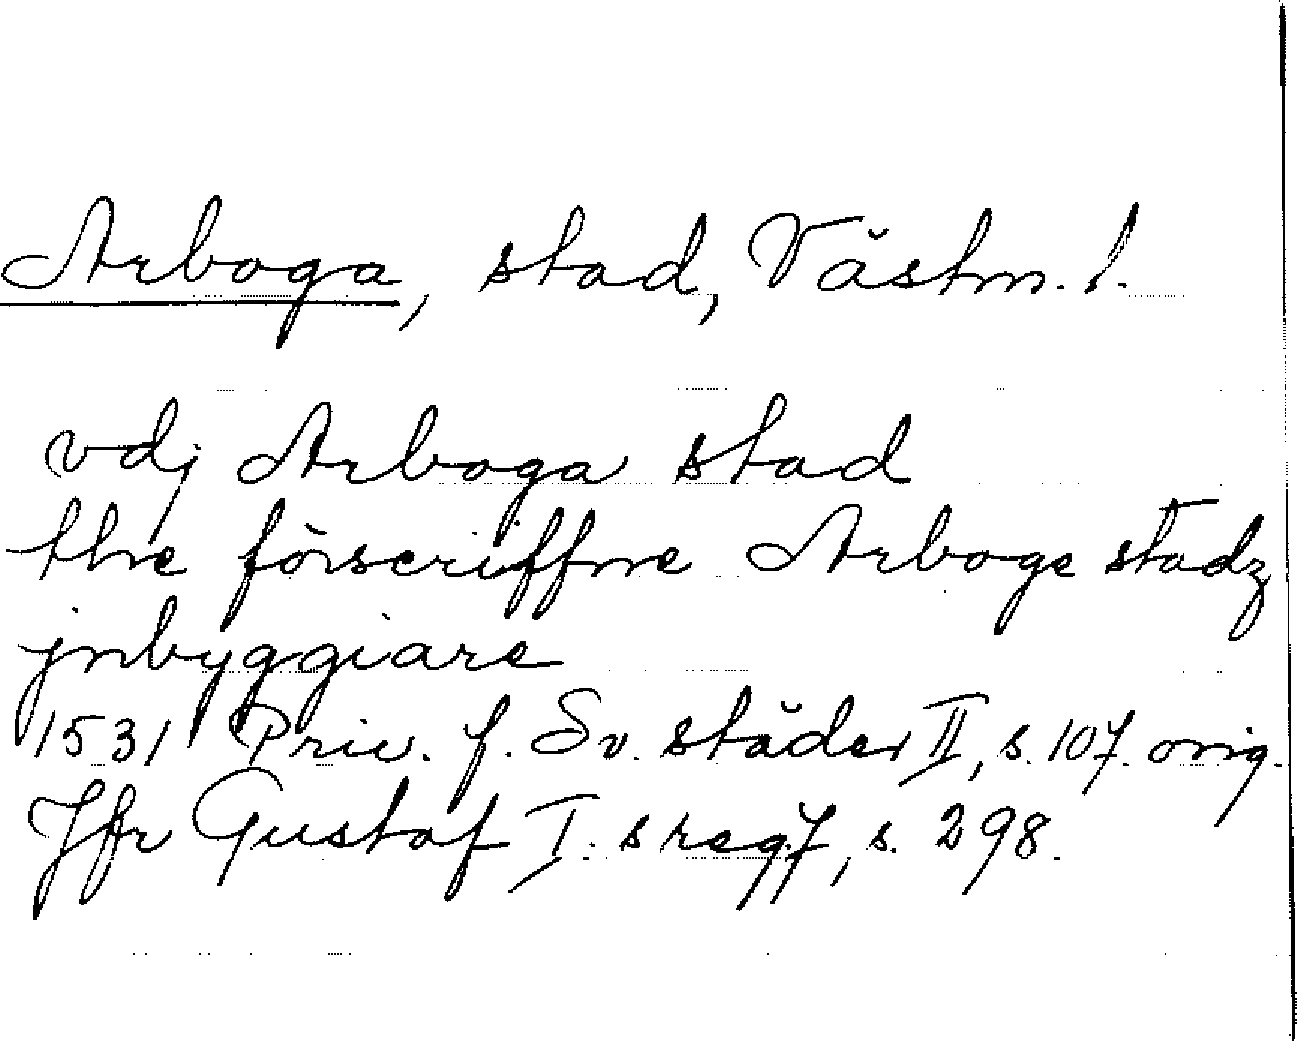 Arboga, stad, Västm. l.
vdj Arboga stad
the förscriffne Arboge stadz
jnbyggiare
1531 Priv. f. Sv. städer II, s. 107. orig.
Jfr Gustaf I. s reg 7, s. 298.